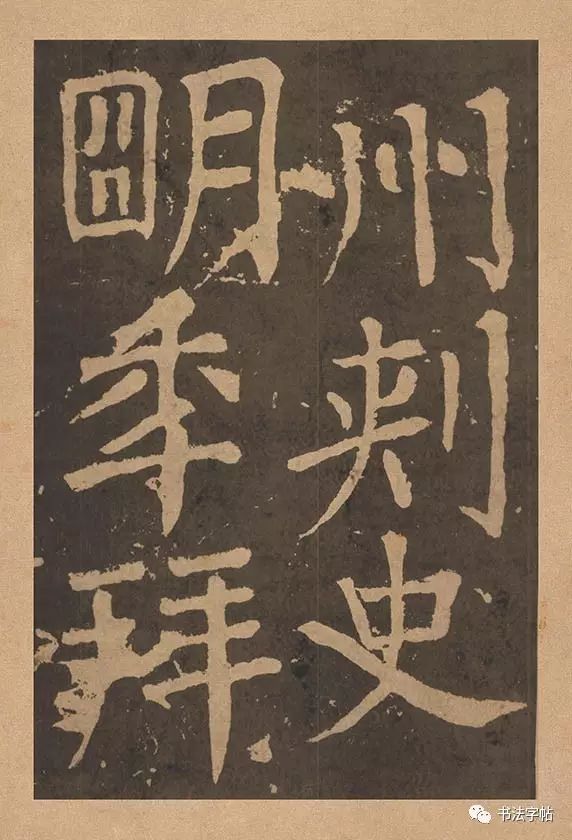 州刺史
明年拜
书法字帖